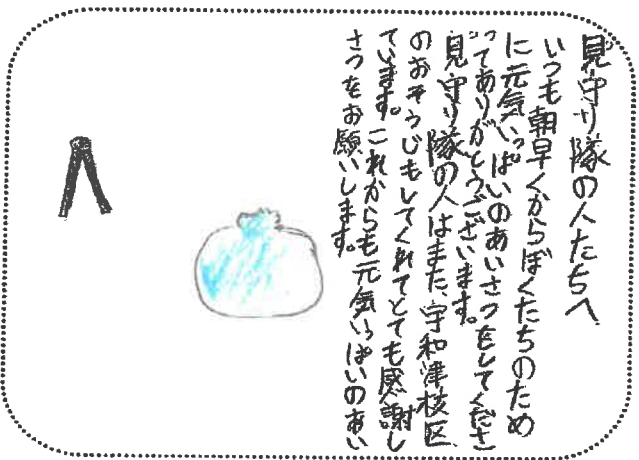 見守り隊の人たちへ
いつも朝早くからぼくたちのため
に元気いっぱいのあいさつをしてくださ
ってありがとうございます。
見守り隊の人はまた、宇和津校区
のおそうじもしてくれてとても感謝し
ています。これからも元気いっぱいのあい
さつをお願いします。